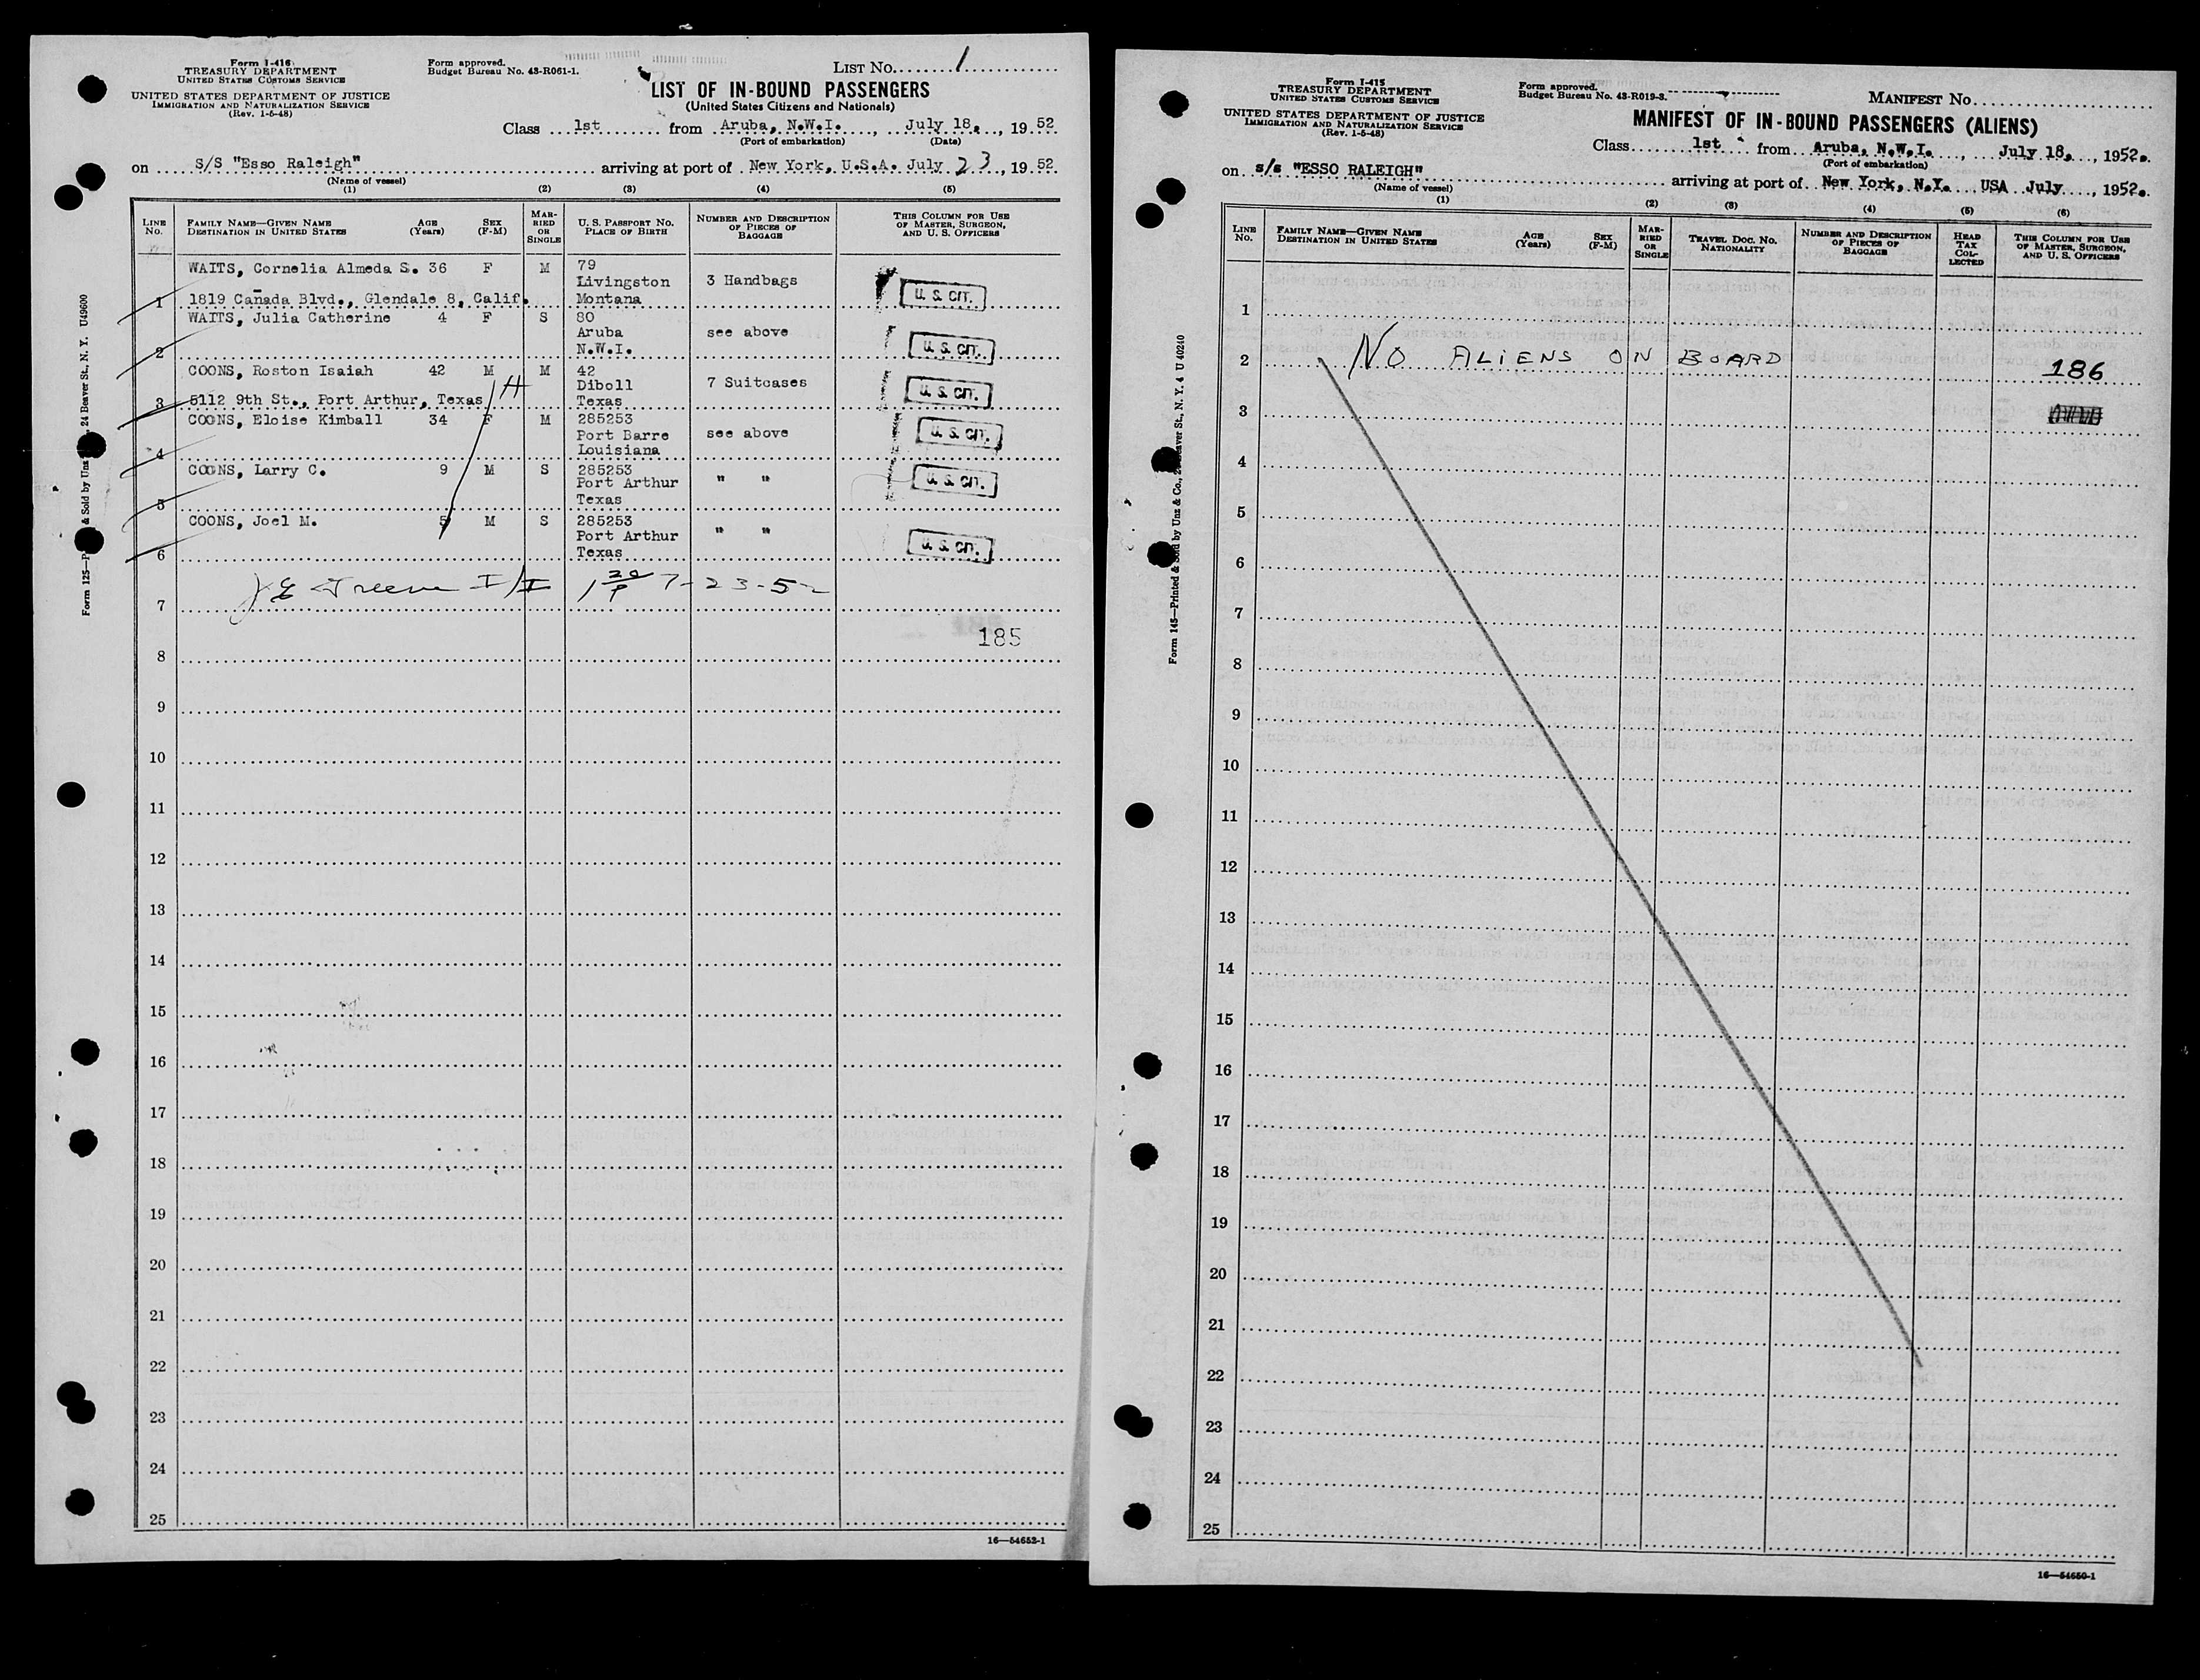 Form I-416
TREASURY DEPARTMENT
UNITED STATES CUSTOMS SERVICE
UNITED STATES DEPARTMENT OF JUSTICE
IMMIGRATION AND NATURALIZATION SERVICE
(Rev. 1-5-48)
Form approved.
Budget Bureau No. 43-R061-1.
LIST NO. 1
LIST OF IN-BOUND PASSENGERS
(United States Citizens and Nationals)
Class 1st from Aruba, N.W.I., July 18, 1952
(Port of embarkation) (Date)
on S/S "Esso Raleigh" arriving at port of New York, U.S.A. July 23, 1952
(Name of vessel)
(1) (2) (3) (4) (5)
LINE NO.
FAMILY NAME—GIVEN NAME
DESTINATION IN UNITED STATES
AGE (Years)
SEX (F-M)
MARRIED OR SINGLE
U. S. PASSPORT NO.
PLACE OF BIRTH
NUMBER AND DESCRIPTION OF PIECES OF BAGGAGE
THIS COLUMN FOR USE OF MASTER, SURGEON, AND U. S. OFFICERS
WAITS, Cornelia Almeda S. 36 F M 79
Livingston 3 Handbags
1 1819 Cañada Blvd., Glendale 8, Calif. Montana U. S. CIT.
WAITS, Julia Catherine 4 F S 80
Aruba see above
2 N.W.I. U. S. CIT.
COONS, Roston Isaiah 42 M M 42
Diboll 7 Suitcases
3 5112 9th St., Port Arthur, Texas Texas U. S. CIT.
COONS, Eloise Kimball 34 F M 285253
Port Barre see above
4 Louisiana U. S. CIT.
COONS, Larry C. 9 M S 285253
Port Arthur " "
5 Texas U. S. CIT.
COONS, Joel M. 5 M S 285253
Port Arthur " "
6 Texas U. S. CIT.
Greene I/I 1 20/P 7-23-52
7
185
8
9
10
11
12
13
14
15
16
17
18
19
20
21
22
23
24
25
16—54652-1
24 Beaver St., N. Y. U49600
Form I-415
TREASURY DEPARTMENT
UNITED STATES CUSTOMS SERVICE
UNITED STATES DEPARTMENT OF JUSTICE
IMMIGRATION AND NATURALIZATION SERVICE
(Rev. 1-5-48)
Form approved.
Budget Bureau No. 43-R019-3.
MANIFEST NO.
MANIFEST OF IN-BOUND PASSENGERS (ALIENS)
Class 1st from Aruba, N.W.I., July 18, 1952.
(Port of embarkation)
on s/s "ESSO RALEIGH" arriving at port of New York, N.Y. USA July, 1952.
(Name of vessel)
(1) (2) (3) (4) (5) (6)
LINE NO.
FAMILY NAME—GIVEN NAME
DESTINATION IN UNITED STATES
AGE (Years)
SEX (F-M)
MARRIED OR SINGLE
TRAVEL DOC. NO.
NATIONALITY
NUMBER AND DESCRIPTION OF PIECES OF BAGGAGE
HEAD TAX COLLECTED
THIS COLUMN FOR USE OF MASTER, SURGEON, AND U. S. OFFICERS
1
2 NO ALIENS ON BOARD 186
3
4
5
6
7
8
9
10
11
12
13
14
15
16
17
18
19
20
21
22
23
24
25
16—54650-1
Form 145—Printed & Sold by Unz & Co., 24 Beaver St., N. Y. 4 U 40240